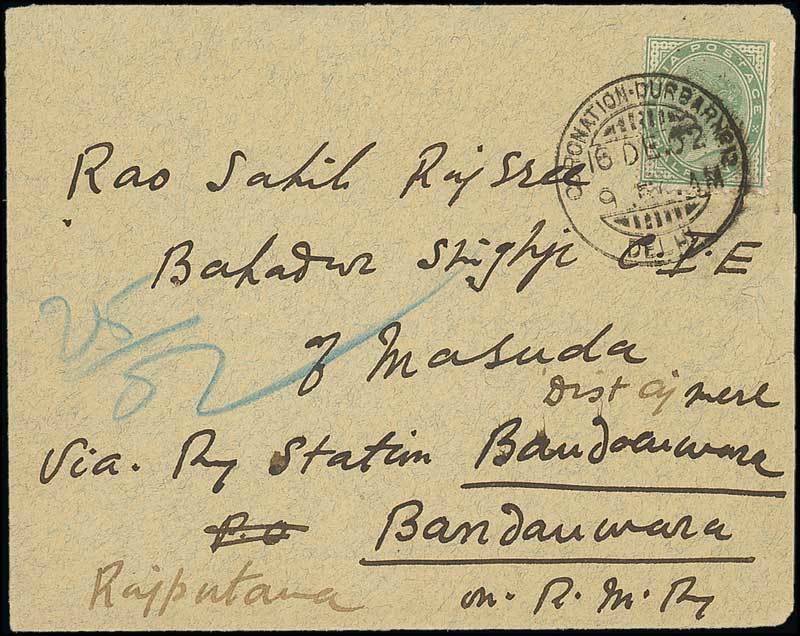 A POSTAGE
CORONATION-DURBAR
16 DE 02
9 AM
DELHI
Rao Sahib Raj Sree
Bahadur Singhji C.I.E
of Masuda
Dist Ajmere
Via. Ry Station Bandanwara
P.O Bandanwara
Rajputana on. R. M. Ry
25/02